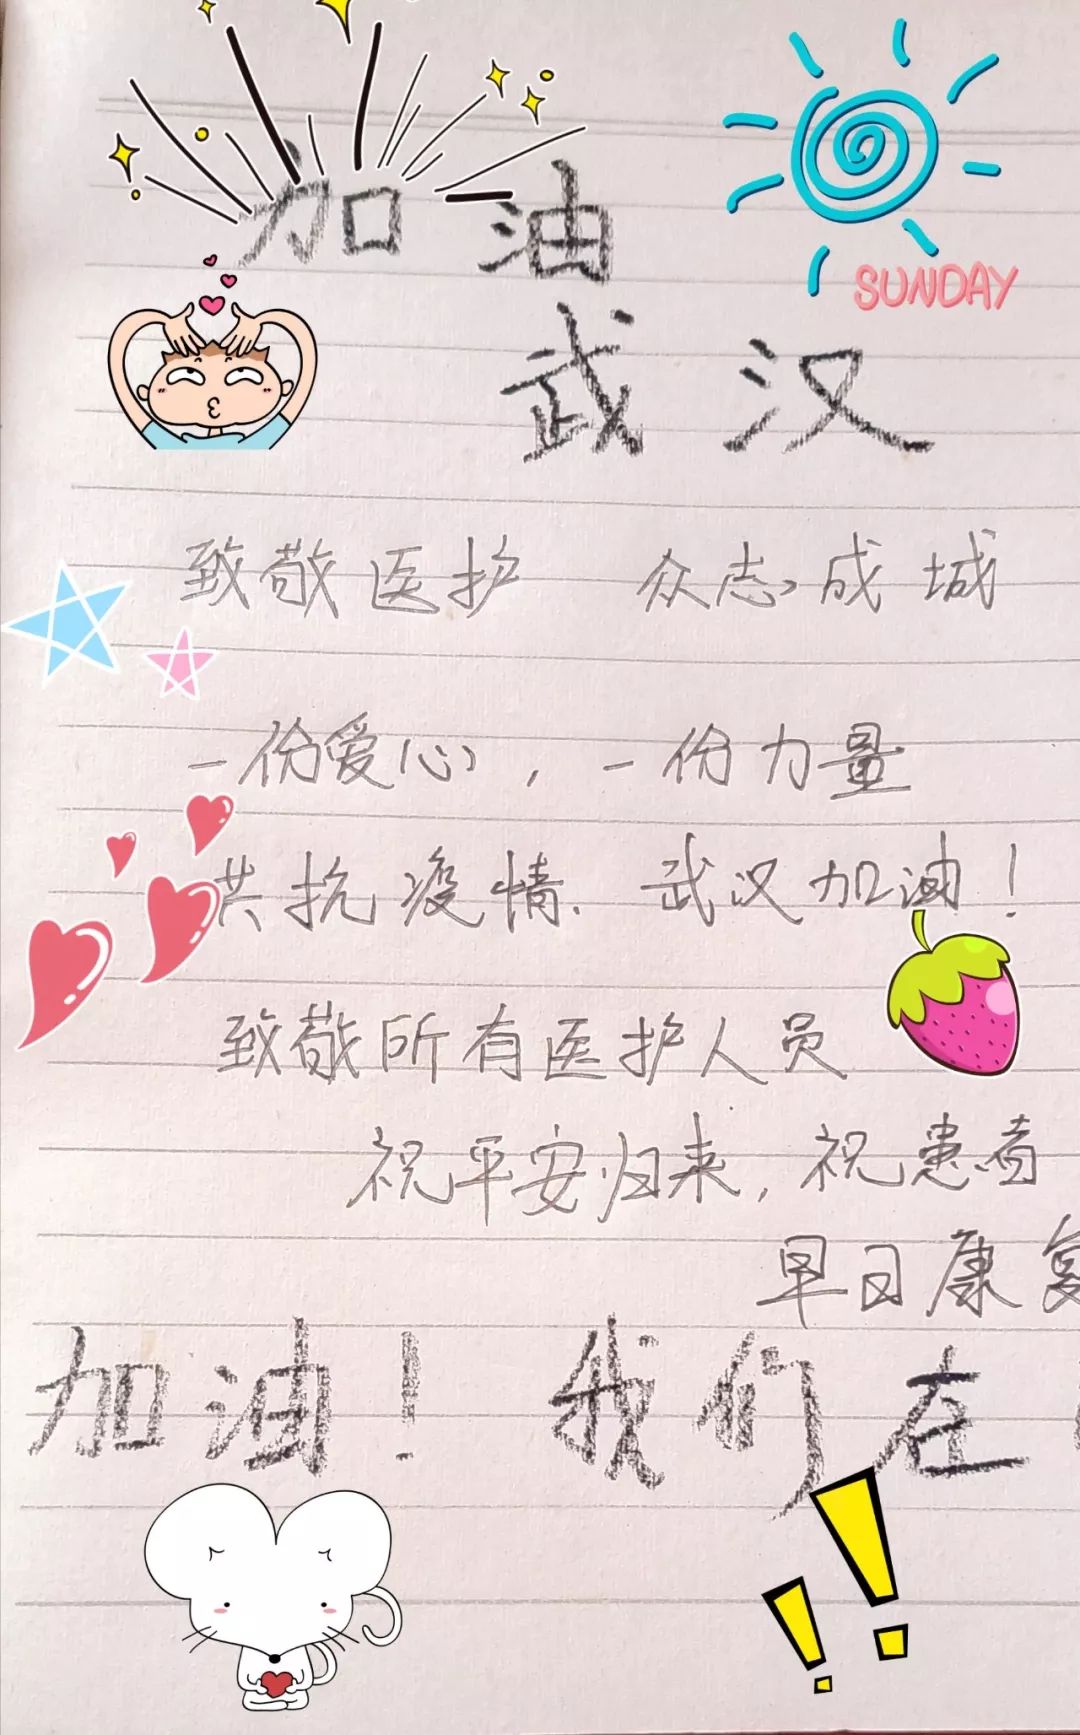 加油
SUNDAY
武汉
致敬医护 众志成城
一份爱心，一份力量
共抗疫情. 武汉加油！
致敬所有医护人员
祝平安归来，祝患者
早日康复
加油！我们在